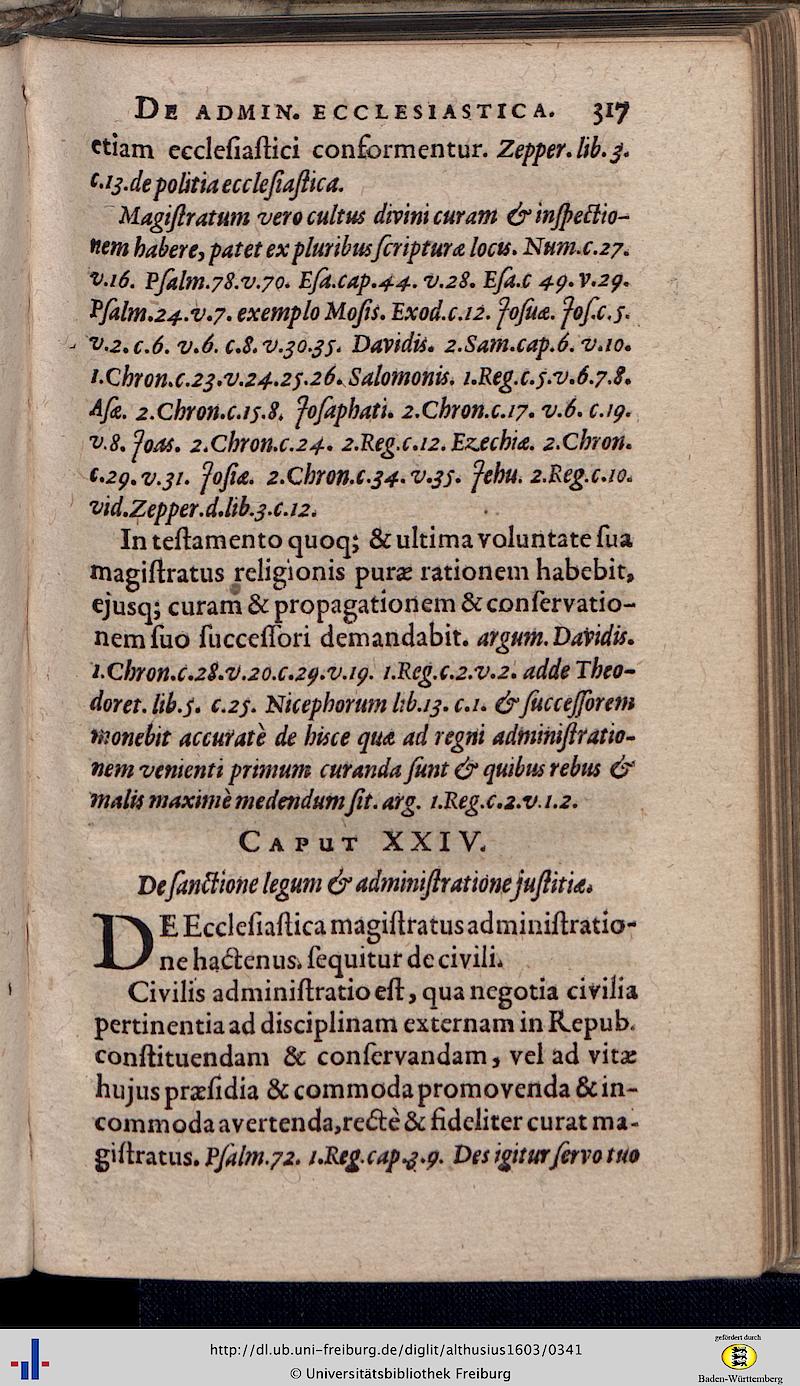 DE ADMIN. ECCLESIASTICA. 317
etiam ecclesiaſtici conformentur. Zepper. lib. 3.
c.13. de politia eccleſiaſtica.
Magiſtratum vero cultus divini curam & inſpectio-
nem habere, patet ex pluribus ſcripturæ locis. Num.c.27.
v.16. Pſalm.78.v.70. Eſa.cap.44. v.28. Eſa.c 49.v.29.
Pſalm.24.v.7. exemplo Moſis. Exod.c.12. Joſuæ. Joſ.c.5.
v.2. c.6. v.6. c.8. v.30.35. Davidis. 2.Sam.cap.6. v.10.
1.Chron.c.23.v.24.25.26. Salomonis. 1.Reg.c.5.v.6.7.8.
Aſæ. 2.Chron.c.15.8. Joſaphati. 2.Chron.c.17. v.6. c.19.
v.8. Joas. 2.Chron.c.24. 2.Reg.c.12. Ezechiæ. 2.Chron.
c.29.v.31. Joſiæ. 2.Chron.c.34.v.35. Jehu. 2.Reg.c.10.
vid. Zepper.d.lib.3.c.12.
In teſtamento quoq; & ultima voluntate ſua
magiſtratus religionis puræ rationem habebit,
ejusq; curam & propagationem & conſervatio-
nem ſuo ſucceſſori demandabit. argum. Davidis.
1.Chron.c.28.v.20.c.29.v.19. 1.Reg.c.2.v.2. adde Theo-
doret. lib.5. c.25. Nicephorum lib.13. c.1. & ſucceſſorem
monebit accuratè de hisce quæ ad regni adminiſtratio-
nem venienti primum curanda ſunt & quibus rebus &
malis maximè medendum ſit. arg. 1.Reg.c.2.v.1.2.
CAPUT XXIV.
De ſanctione legum & adminiſtratione juſtitiæ.
DE Eccleſiaſtica magiſtratus adminiſtratio-
ne hactenus. ſequitur de civili.
Civilis adminiſtratio eſt, qua negotia civilia
pertinentia ad disciplinam externam in Repub.
conſtituendam & conſervandam, vel ad vitæ
hujus præſidia & commoda promovenda & in-
commoda avertenda, rectè & fideliter curat ma-
giſtratus. Pſalm.72. 1.Reg.cap.3.9. Des igitur ſervo tuo
http://dl.ub.uni-freiburg.de/diglit/althusius1603/0341
© Universitätsbibliothek Freiburg
gefördert durch
Baden-Württemberg